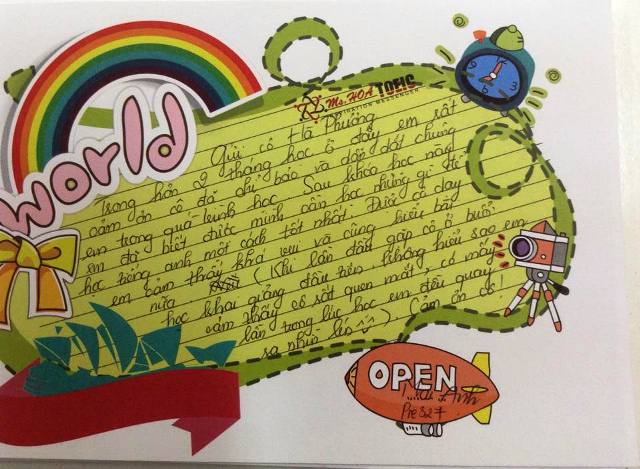 world
Ms. HOA TOEIC
Gửi cô Hà Phương
Trong hơn 2 tháng học ở đây em rất
cảm ơn cô đã chỉ bảo và dẫn dắt chúng
em trong quá trình học. Sau khóa học này
em đã biết được mình cần học những gì để
học tiếng anh một cách tốt nhất. Được cô dạy
em cảm thấy khá vui và cũng hiểu bài
nữa (Khi lần đầu gặp cô ở buổi
học khai giảng đầu tiên không hiểu sao em
cảm thấy cô rất quen mắt, có mấy
lần trong lúc học em đều quay
ra nhìn lén ^^) Cảm ơn cô!
OPEN
Anh
Pre 327